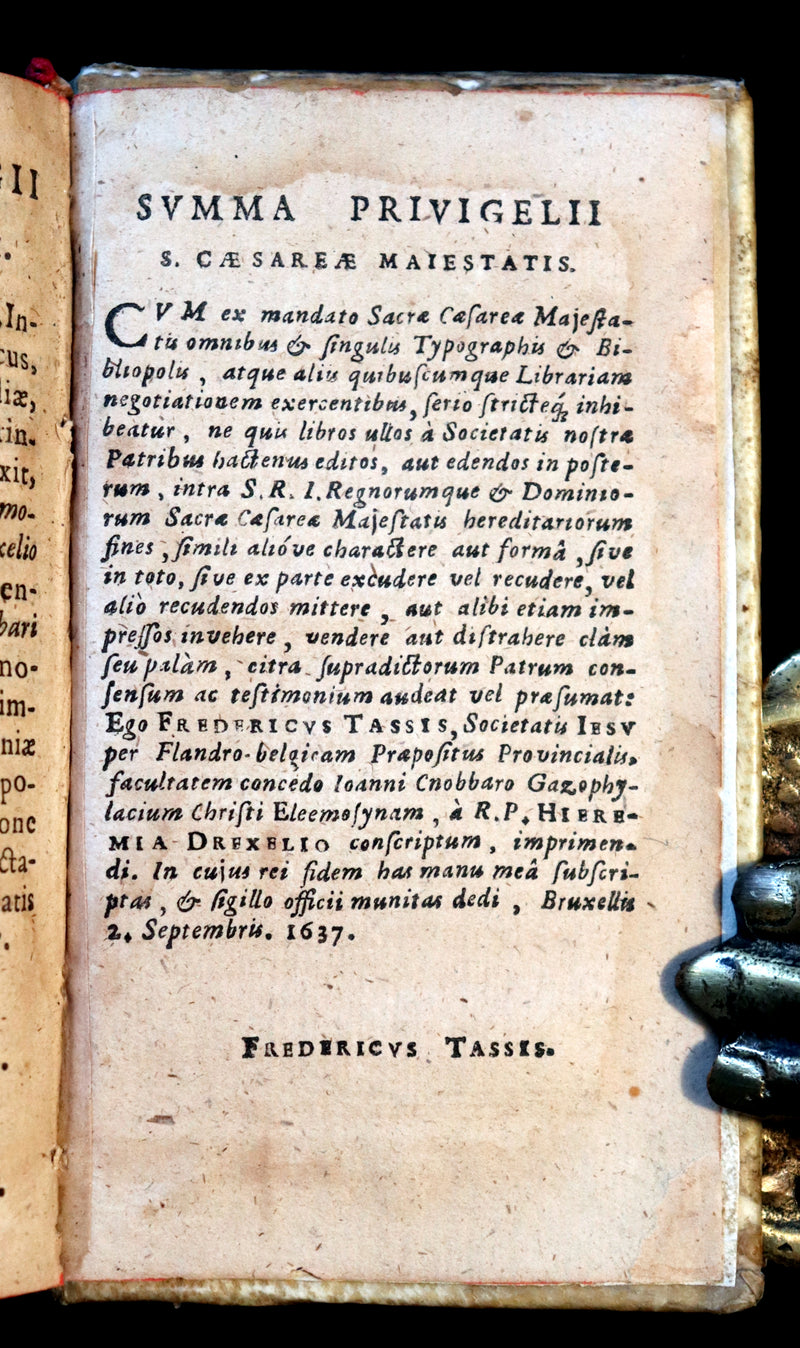 GII
.
In-
cus,
liæ,
rin.
xit,
mo-
xelio
en-
bari
no-
im-
niæ
po-
one
cta-
atis
SVMMA PRIVIGELII
S. CÆSAREÆ MAIESTATIS.
CVM ex mandato Sacræ Cæſareæ Majeſta-
tis omnibus & ſingulis Typographis & Bi-
bliopolis, atque aliis quibuſcumque Librariam
negotiationem exercentibus, ſerio ſtricteq́; inhi-
beatur, ne quis libros ullos à Societatis noſtræ
Patribus hactenus editos, aut edendos in poſte-
rum, intra S. R. I. Regnorumque & Dominio-
rum Sacræ Cæſareæ Majeſtatis hereditariorum
fines, ſimili alióve charactere aut formâ, ſive
in toto, ſive ex parte excudere vel recudere, vel
aliò recudendos mittere, aut alibi etiam im-
preſſos invehere, vendere aut diſtrahere clàm
ſeu palàm, citra ſupradictorum Patrum con-
ſenſum ac teſtimonium audeat vel præſumat:
Ego FREDERICVS TASSIS, Societatis IESV
per Flandro-belgicam Præpoſitus Provincialis,
facultatem concedo Ioanni Cnobbaro Gazophy-
lacium Chriſti Eleemoſynam, à R. P. HIERE-
MIA DREXELIO conſcriptum, imprimen-
di. In cujus rei fidem has manu meâ ſubſcri-
ptas, & ſigillo officii munitas dedi, Bruxellis
2. Septembris. 1637.
FREDERICVS TASSIS.